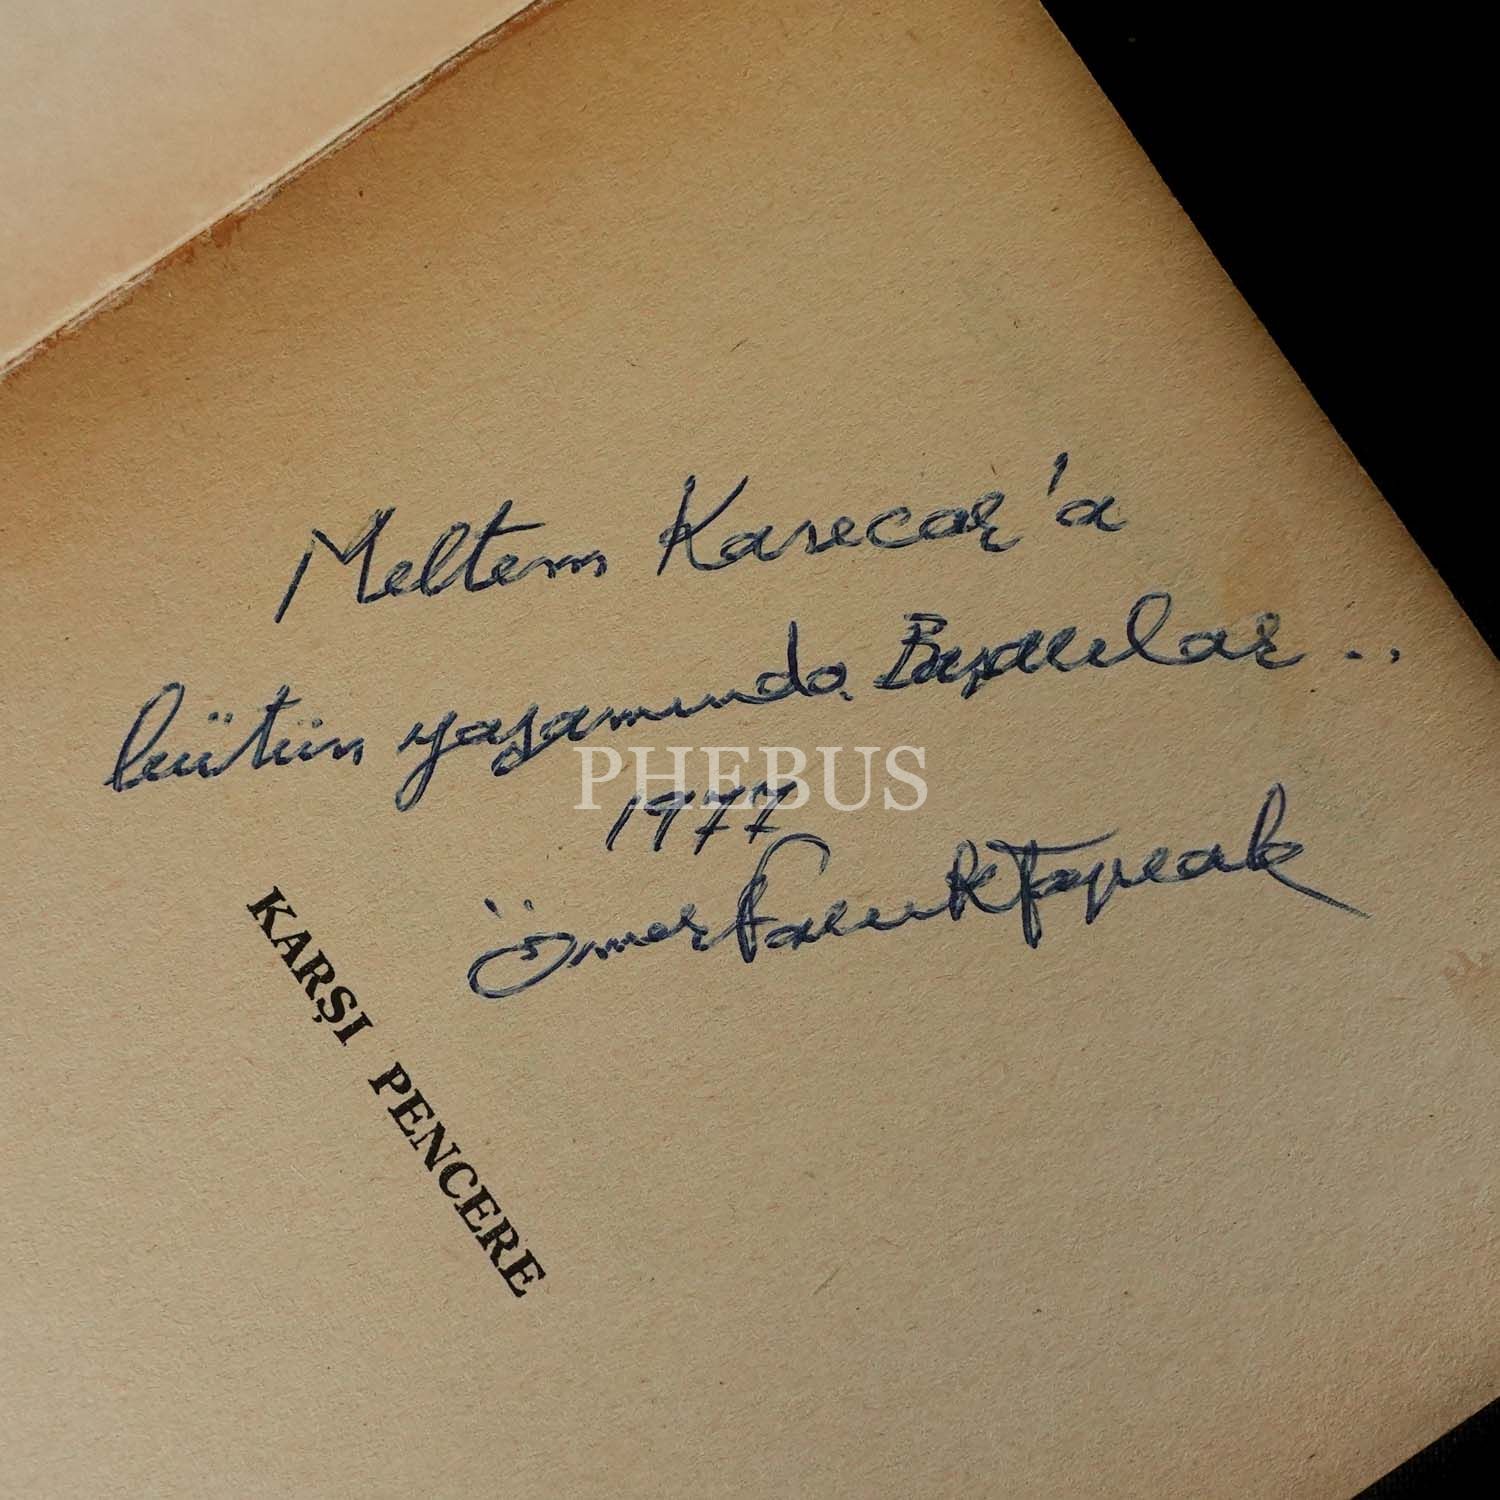 Meltem Karecar'a
bütün yaşamında Başarılar ..
1977
Ömer Faruk Toprak
KARŞI PENCERE
PHEBUS